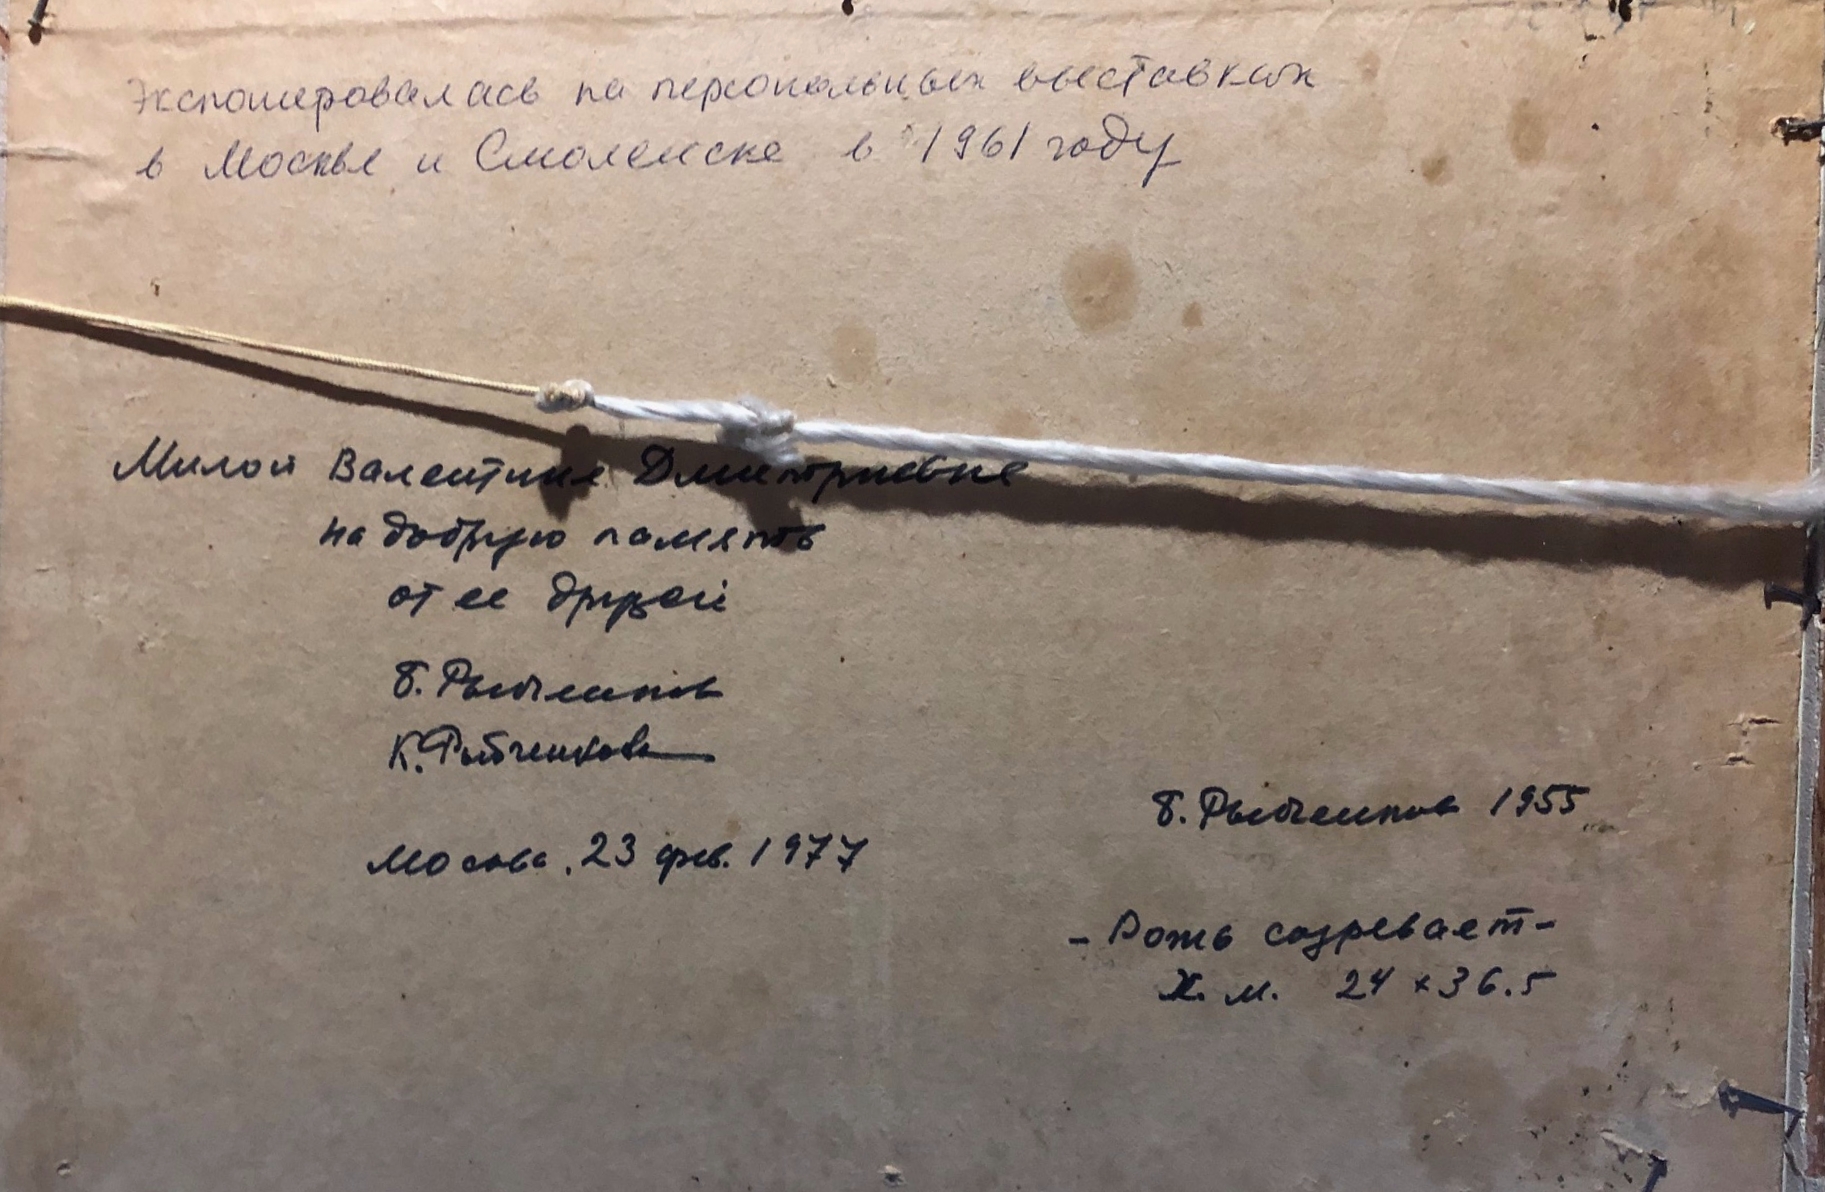 Экспонировалась на персональных выставках
в Москве и Смоленске в 1961 году
Милой Валентине Дмитриевне
на добрую память
от ее друзей
Б. Рыбченков
К. Рыбченкова
Москва, 23 фев. 1977
Б. Рыбченков 1955
- Рожь созревает -
Х. м. 24 x 36.5